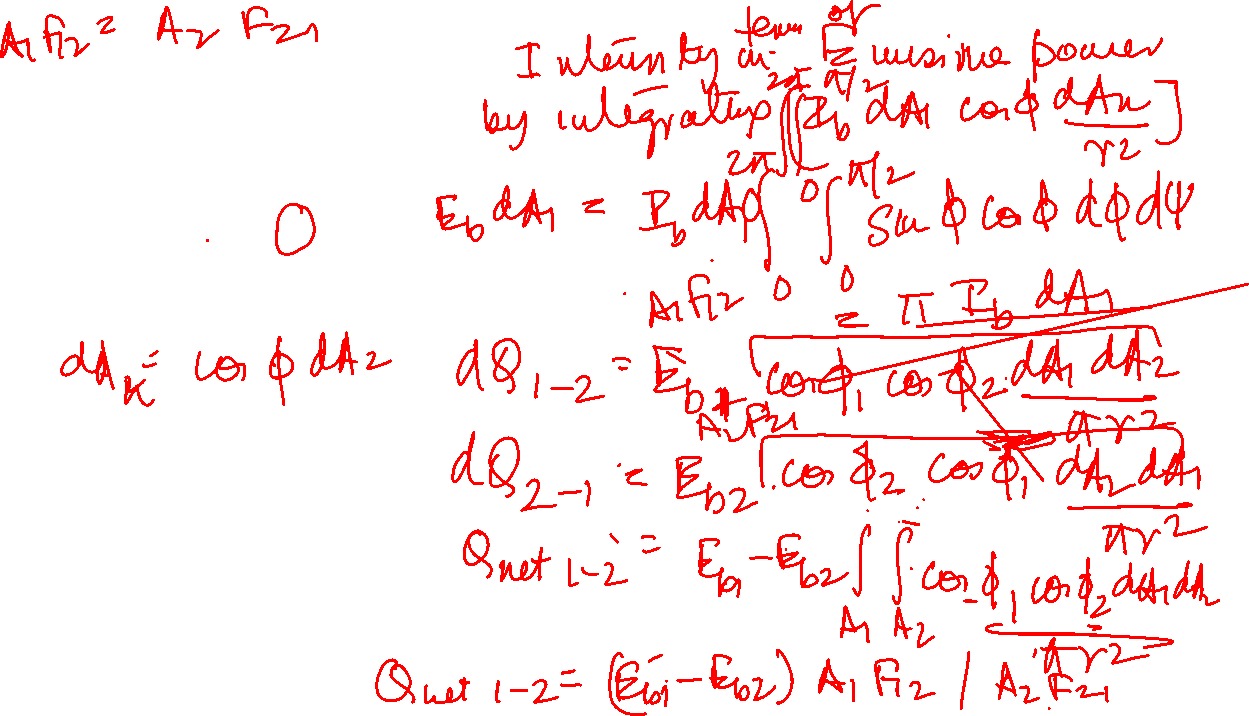 A₁ F₁₂ = A₂ F₂₁
Intensity in term of Emissive power
by integration ∫₀^2π ∫₀^π/2 [I_b dA₁ cos ϕ dAn / r²]
E_b dA₁ = I_b dA₁ ∫₀^2π ∫₀^π/2 Sin ϕ cos ϕ dϕ dψ
= π I_b dA₁
A₁ F₁₂
dA_K = cos ϕ dA₂
dQ₁₋₂ = E_b₁ cos ϕ₁ cos ϕ₂ dA₁ dA₂ / πr²
A₂ F₂₁
dQ₂₋₁ = E_b2 cos ϕ₂ cos ϕ₁ dA₂ dA₁ / πr²
Qnet 1-2 = E_b1 - E_b2 ∫_A₁ ∫_A₂ cos ϕ₁ cos ϕ₂ dA₁ dA₂ / πr²
Qnet 1-2 = (E_b1 - E_b2) A₁ F₁₂ / A₂ F₂₁